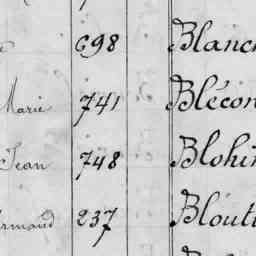 698 Blanc
Marie 741 Blécon
Jean 748 Blohi
rmand 237 Blout